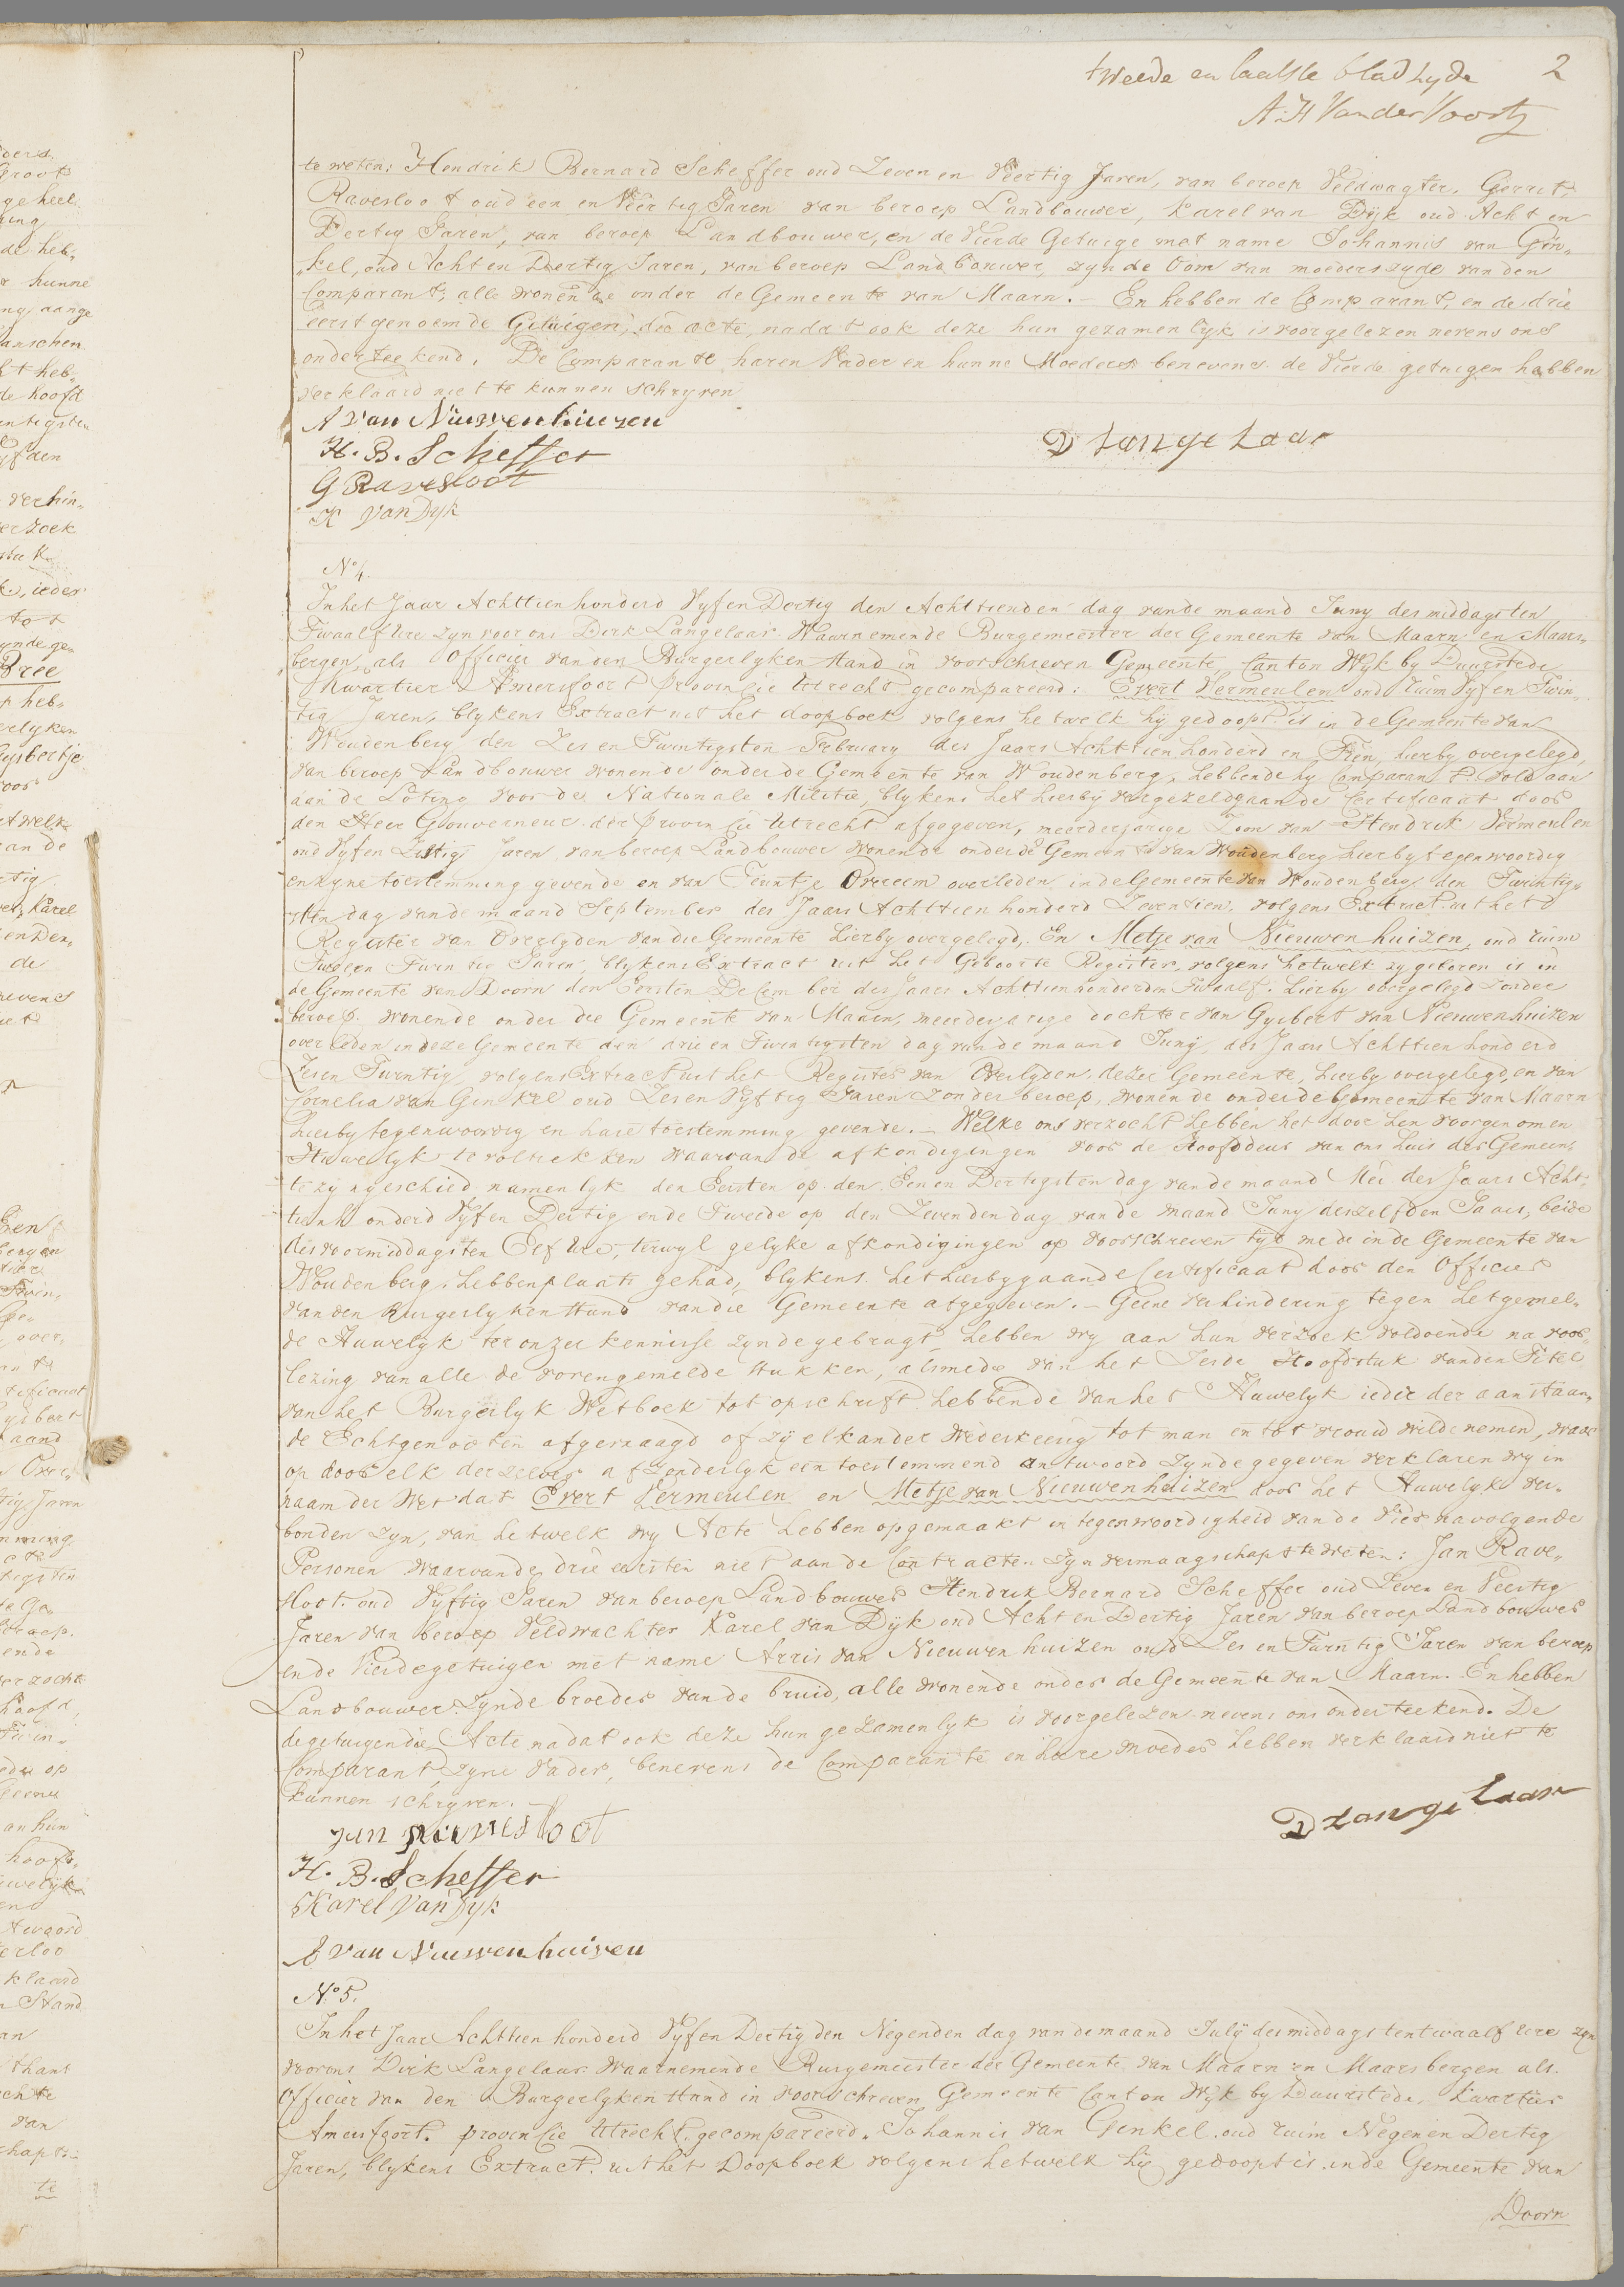 tweede en laatste bladzyde 2
A. H. VanderVoort
te weten: Hendrik Bernard Scheffer oud Zeven en Veertig Jaren, van beroep Veldwagter, Gerrit
Raversloot oud een en Veertig Jaren van beroep Landbouwer, Karel van Dyk oud Acht en
Dertig Jaren, van beroep Landbouwer, en de Vierde Getuige met name Johannis van Gin„
„kel, oud Acht en Dertig Jaren, van beroep Landbouwer, zynde Oom van moeders zyde van den
Comparant, alle wonende onder de Gemeente van Maarn. — En hebben de Comparant, en de drie
eerstgenoemde Getuigen, die acte, nadat ook deze hun gezamenlyk is voorgelezen nevens ons
onderteekend. De Comparante haren Vader en hunne Moeders benevens de Vierde getuigen hebben
verklaard niet te kunnen schryven
A van Nieuwenhuizen
H. B. Scheffer
D Langelaar
G Raversloot
K van Dyk
No 4.
In het Jaar Achttienhonderd Vyf en Dertig den Achttienden dag van de maand Juny des middags ten
Twaalf Ure zyn voor ons Dirk Langelaar Waarnemende Burgemeester der Gemeente van Maarn en Maars„
bergen, als Officier van den Burgerlyken Stand in voorschreven Gemeente, Canton Wyk by Duurstede
Kwartier Amersfoort Provincie Utrecht gecompareerd: Evert Vermeulen oud ruim Vyf en Twin„
tig Jaren, blykens Extract uit het doopboek volgens hetwelk hy gedoopt is in de Gemeente van
Woudenberg den Zes en Twintigsten February des Jaars Achttien honderd en Tien, hierby overgelegd,
van beroep Landbouwer wonende onder de Gemeente van Woudenberg, hebbende hy Comparant voldaan
aan de Loting voor de Nationale Militie, blykens het hierby vergezeldgaande Certificaat door
den Heer Gouverneur der Provincie Utrecht afgegeven, meerderjarige Zoon van Hendrik Vermeulen
oud Vyf en Zestig Jaren van beroep Landbouwer wonende onder de Gemeente van Woudenberg hierby tegenwoordig
en zyne toestemming gevende en van Teuntje Overeem overleden in de Gemeente van Woudenberg den Twintig„
sten dag van de maand September des Jaars Achttien honderd Zeventien, volgens Extract uit het
Register van Overlyden van die Gemeente hierby overgelegd. En Metje van Nieuwenhuizen, oud ruim
Twee en Twintig Jaren, blykens Extract uit het Geboorte Register, volgens hetwelk zy geboren is in
de Gemeente van Doorn den Eersten December des Jaars Achttienhonderd en Twaalf, hierby overgelegd zonder
beroep, wonende onder de Gemeente van Maarn, meerderjarige dochter van Gysbert van Nieuwenhuizen
overleden in deze Gemeente den drie en Twintigsten dag van de maand Juny, des Jaars Achttien honderd
Zes en Twintig, volgens Extract uit het Register van Overlyden dezer Gemeente, hierby overgelegd, en van
Cornelia van Ginkel oud Zes en Vyftig Jaren zonder beroep, wonende onder de Gemeente van Maarn
hierby tegenwoordig en hare toestemming gevende. — Welke ons verzocht hebben het door hen voorgenomen
Huwelyk te voltrekken waarvan de afkondigingen voor de Hoofddeur van ons huis der Gemeen„
te zyn geschied namenlyk den Eersten op den Een en Dertigsten dag van de maand Mei des Jaars Acht„
tienhonderd Vyf en Dertig en de Tweede op den Zevenden dag van de maand Juny deszelfden Jaars, beide
des voormiddags ten Elf Ure, terwyl gelyke afkondigingen op voorschreven tyd mede in de Gemeente van
Woudenberg hebben plaats gehad, blykens het hierbygaande Certificaat door den Officier
van den Burgerlyken Stand van die Gemeente afgegeven. — Geene verhindering tegen het gemel„
de Huwelyk ter onzer kennisse zynde gebragt, hebben wy aan hun verzoek voldoende na voor„
lezing van alle de vorengemelde stukken, alsmede van het Zesde Hoofdstuk van den Titel
van het Burgerlyk Wetboek tot opschrift hebbende van het Huwelyk ieder der aanstaan„
de Echtgenooten afgevraagd of zy elkander wederkeerig tot man en tot vrouw wilde nemen, waar
op door elk derzelver afzonderlyk een toestemmend antwoord zynde gegeven verklaren wy in
naam der Wet dat Evert Vermeulen en Metje van Nieuwenhuizen door het Huwelyk ver„
bonden zyn, van hetwelk wy Acte hebben opgemaakt in tegenwoordigheid van de Vier navolgende
Personen waarvan de drie eersten niet aan de Contracten zyn vermaagschapt te weten: Jan Rave„
sloot oud Vyftig Jaren van beroep Landbouwer Hendrik Bernard Scheffer oud Zeven en Veertig
Jaren van beroep Veldwachter Karel van Dyk oud Acht en Dertig Jaren van beroep Landbouwer
en de Vierde getuigen met name Arris van Nieuwenhuizen oud Zes en Twintig Jaren van beroep
Landbouwer zynde broeder van de bruid, alle wonende onder de Gemeente van Maarn. En hebben
de getuigen die Acte nadat ook deze hun gezamenlyk is voorgelezen nevens ons onderteekend. De
Comparant, zyne vader, benevens de Comparante en hare moeder hebben verklaard niet te
kunnen schryven. —
Jan raversloot
D Langelaar
H. B. Scheffer
Karel van Dyk
A van Nieuwenhuizen
No 5.
In het Jaar Achttien honderd Vyf en Dertig den Negenden dag van de maand July des middags ten twaalf ure zyn
voor ons Dirk Langelaar Waarnemende Burgemeester der Gemeente van Maarn en Maarsbergen als
Officier van den Burgerlyken Stand in voorschreven Gemeente Canton Wyk by Duurstede, Kwartier
Amersfoort, provincie Utrecht, gecompareerd. Johannis van Genkel oud ruim Negen en Dertig
Jaren, blykens Extract uit het Doopboek volgens hetwelk hy gedoopt is in de Gemeente van
Doorn